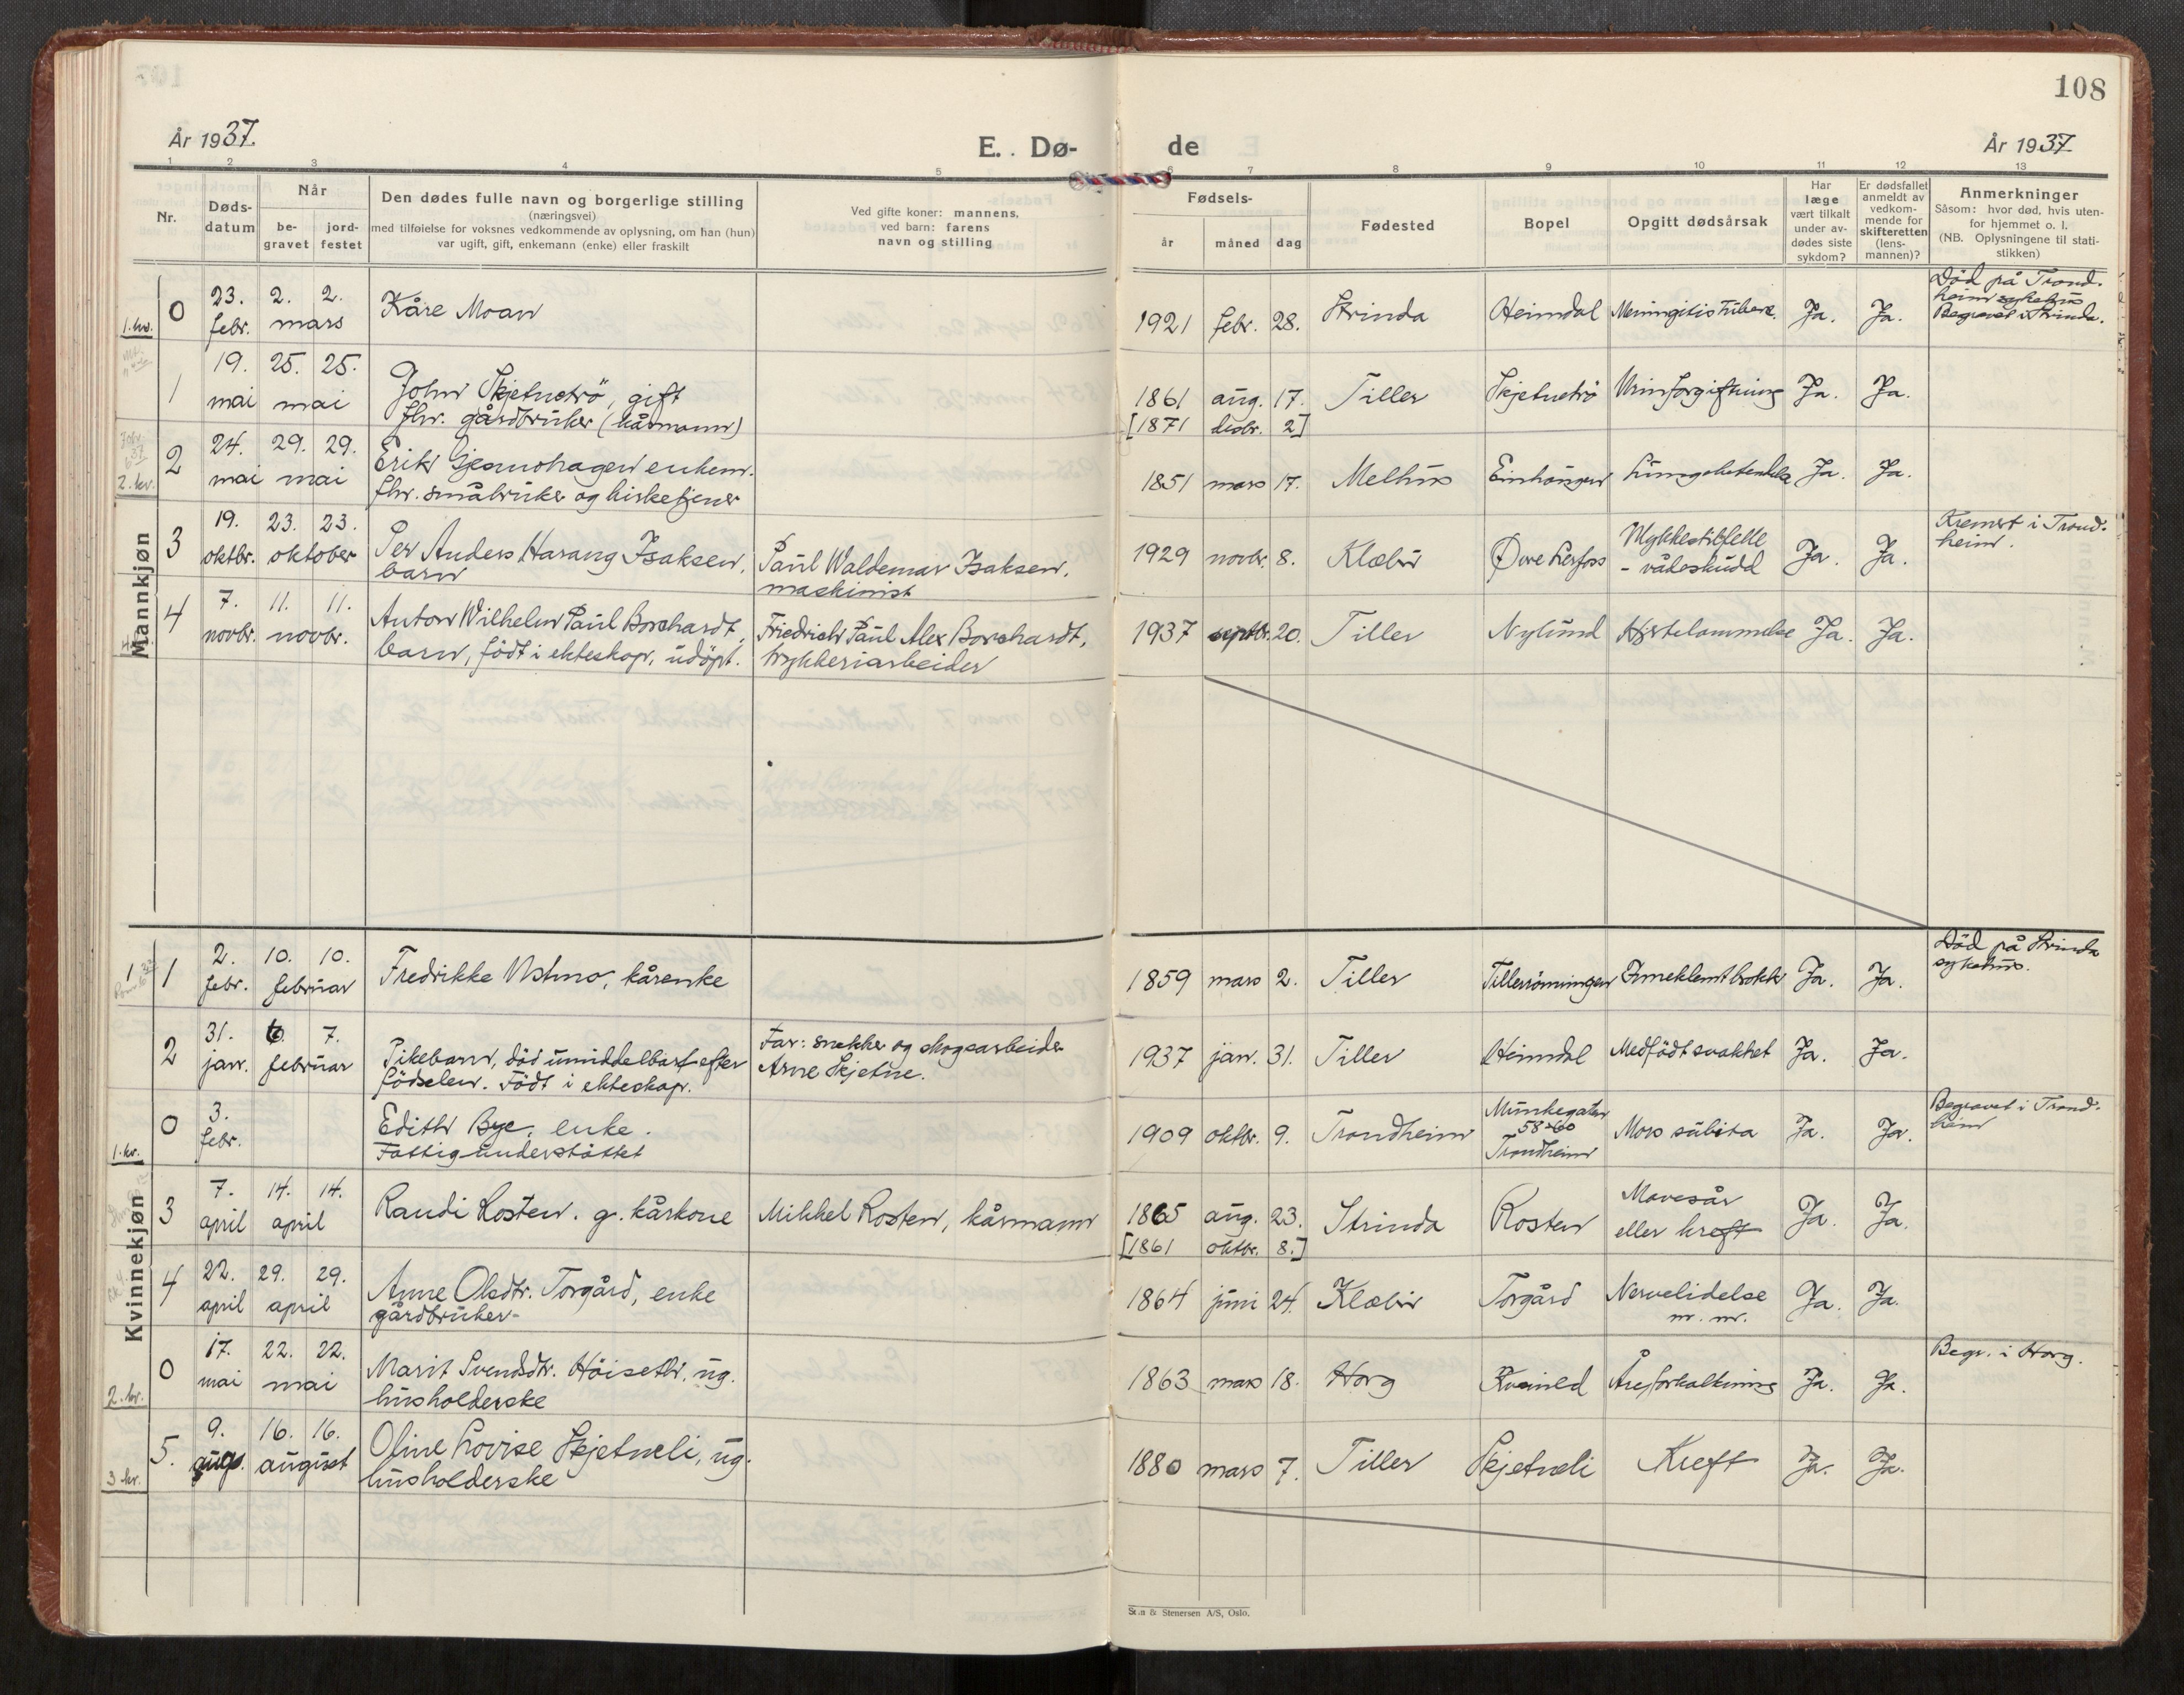 108
År 1937.
E. Dø-
de
År 1937
1 2 3 4 5 6 7 8 9 10 11 12 13
Nr.
Døds-
datum
Når
be-
gravet
jord-
festet
Den dødes fulle navn og borgerlige stilling
(næringsvei)
med tilføielse for voksnes vedkommende av oplysning, om han (hun)
var ugift, gift, enkemann (enke) eller fraskilt
Ved gifte koner: mannens,
ved barn: farens
navn og stilling
Fødsels-
år
måned
dag
Fødested
Bopel
Opgitt dødsårsak
Har
læge
vært tilkalt
under av-
dødes siste
sykdom?
Er dødsfallet
anmeldt av
vedkom-
mende for
skifteretten
(lens-
mannen)?
Anmerkninger
Såsom: hvor død, hvis uten-
for hjemmet o. l.
(NB. Oplysningene til stati-
stikken)
Mannkjøn
1. kv.
0 23. 2. 2. Kåre Moan 1921 febr. 28. Strinda Heimdal Meningitis tuberc. Ja. Ja. Død på Trond-
febr. mars heim sykehus
Begravet i Strinda.
1 19. 25. 25. John Skjetnetrö, gift 1861 aug. 17. Tiller Skjetnetrö Urinforgiftning Ja. Ja.
mai mai fhv. gårdbruker (kårmann) [1871 desbr. 2]
2 24. 29. 29. Erik Gjesmohagen enkem. 1851 mars 17. Melhus Lungebetendelse Ja. Ja.
mai mai fhv. småbruker og kirketjener
2. kv.
3 19. 23. 23. Per Anders Harang Isaksen, Paul Waldemar Isaksen, 1929 novbr. 8. Klæbu Øvre Leirfoss Ulykkestilfelle Ja. Ja. Kremert i Trond-
oktbr. oktober barn maskinist - vådeskudd heim.
4 7. 11. 11. Anton Wilhelm Paul Borchardt, Friedrich Paul Alex Borchardt, 1937 septbr. 20. Tiller Nylund Hjertelammelse Ja. Ja.
novbr. novbr. barn, födt i ekteskap, udöpt. trykkeriarbeider
Kvinnekjøn
1 2. 10. 10. Fredrikke Ustmo, kårenke 1859 mars 2. Tiller Tillerrönningen Inneklemt brokk Ja. Ja. Död på Strinda
febr. februar sykehus.
2 31. 6. 7. Pikebarn, död umiddelbart efter Far: snekker og skogsarbeider 1937 jan. 31. Tiller Heimdal Medfödt svakhet Ja. Ja.
jan. februar födselen. Födt i ekteskap. Arne Skjetne.
0 3. Edith Bye, enke. 1909 oktbr. 9. Trondheim Munkegaten Mors subita Ja. Ja. Begravet i Trond-
febr. Fattigunderstöttet 58-60 heim
Trondheim
1. kv.
3 7. 14. 14. Randi Rosten. g. kårkone Mikkel Rosten, kårmann 1865 aug. 23. Strinda Rosten Mavesår Ja. Ja.
april april [1861 oktbr. 8.] eller kreft
4 22. 29. 29. Anne Olsdtr. Torgård, enke 1864 juni 24. Klæbu Torgård Nervelidelse Ja. Ja.
april april gårdbruker- m. m.
0 17. 22. 22. Marit Svendsdtr. Höiseth, ug. 1863 mars 18. Horg Kvanild Åreforkalkning Ja. Ja. Begr. i Horg.
mai mai husholderske
2. kv.
5. 9. 16. 16. Oline Lovise Skjetneli, ug. 1880 mars 7. Tiller Skjetneli Kreft Ja. Ja.
aug. august husholderske
3 kv.
Sten & Stenersen A/S, Oslo.